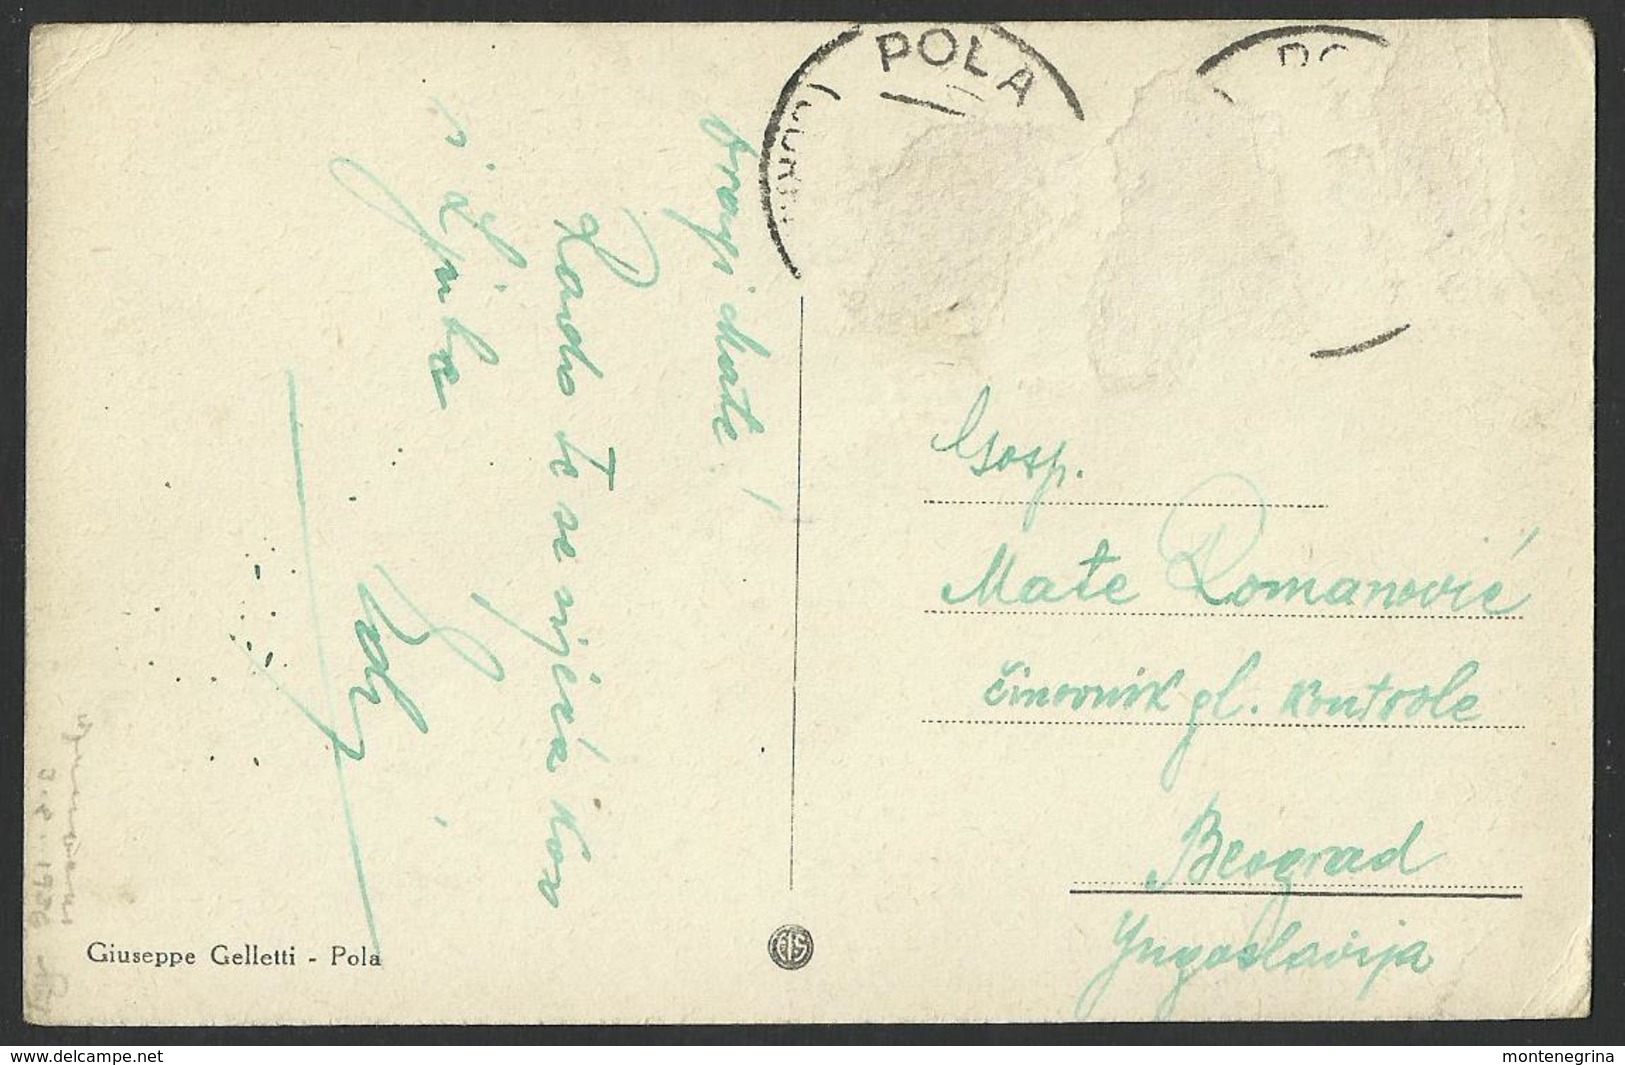 POLA
(CORR
PO
Dragi Mate!
Rado te se sjeća kao
i Ljuba
Gosp.
Mate Romanović
činovnik gl. kontrole
Beograd
Yugoslavija
3.6.1936
Giuseppe Gelletti - Pola
www.delcampe.net
montenegrina